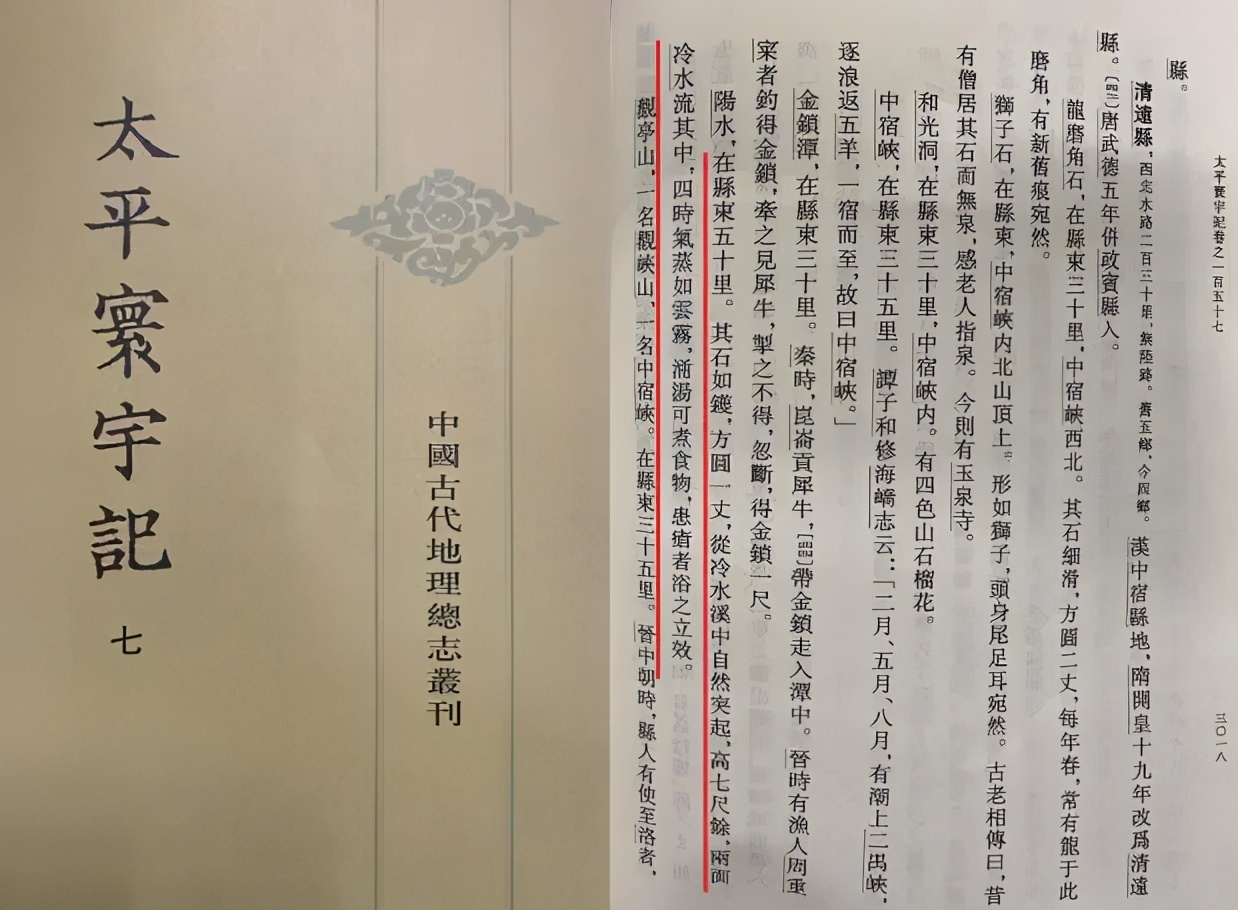 太平寰宇記
七
中國古代地理總志叢刊
太平寰宇記卷之一百五十七
三〇一八
縣。
清遠縣，西北水路二百三十里，無陸路。舊五鄉，今四鄉。漢中宿縣地，隋開皇十九年改爲清遠
縣。〔四二〕唐武德五年併政賓縣入。
龍磨角石，在縣東三十里，中宿峽西北。其石細滑，方圓二丈，每年春，常有龍于此
磨角，有新舊痕宛然。
獅子石，在縣東，中宿峽内北山頂上。形如獅子，頭身尾足耳宛然。古老相傳曰，昔
有僧居其石而無泉，感老人指泉。今則有玉泉寺。
和光洞，在縣東三十里，中宿峽内。有四色山石榴花。
中宿峽，在縣東三十五里。譚子和修海嶠志云：「二月、五月、八月，有潮上二禺峽，
逐浪返五羊，一宿而至，故曰中宿峽。」
金鎖潭，在縣東三十里。秦時，崑崙貢犀牛，〔四三〕帶金鎖走入潭中。晉時有漁人周重
寀者釣得金鎖，牽之見犀牛，掣之不得，忽斷，得金鎖一尺。
陽水，在縣東五十里。其石如鑊，方圓一丈，從冷水溪中自然突起，高七尺餘，兩面
冷水流其中，四時氣蒸如雲霧，湯可煮食物，患瘡者浴之立效。
觀亭山，一名觀峽山，一名中宿峽。在縣東三十五里。晉中朝時，縣人有使至洛者，